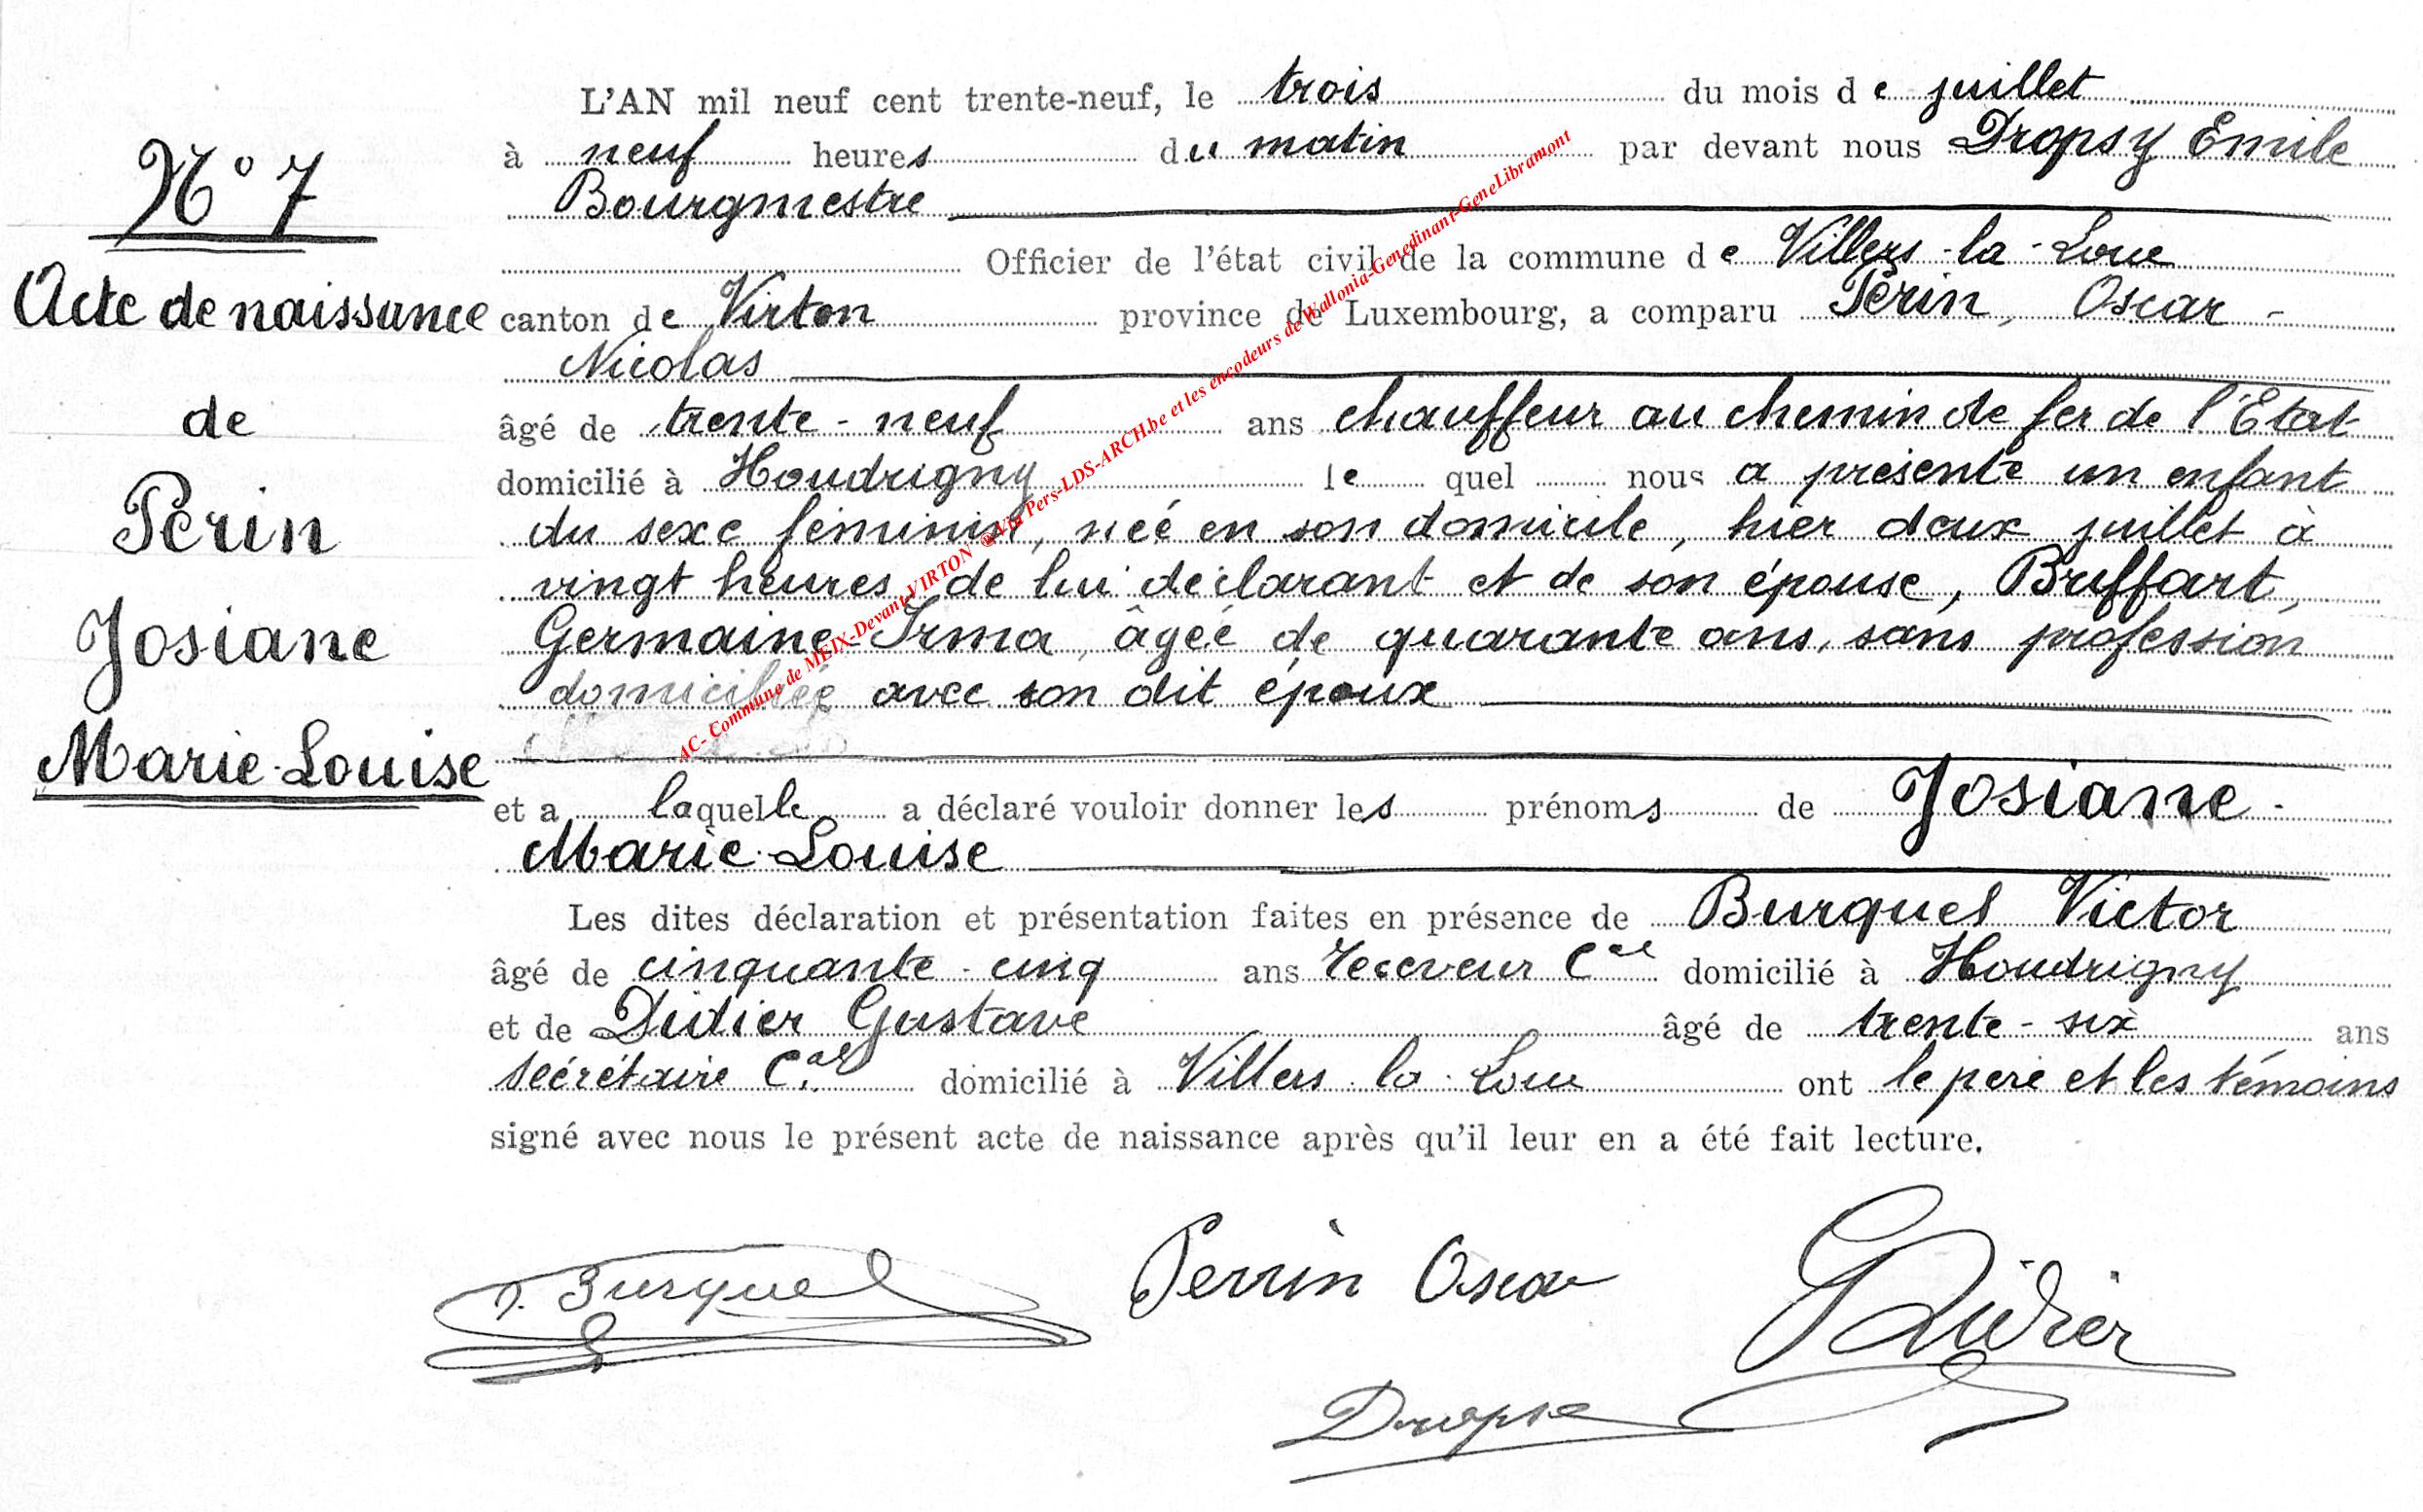 N° 7
Acte de naissance
de
Périn
Josiane
Marie-Louise
L'AN mil neuf cent trente-neuf, le trois du mois de juillet
à neuf heures du matin par devant nous Dropsy Emile
Bourgmestre
Officier de l'état civil de la commune de Villers-la-Loue
canton de Virton province de Luxembourg, a comparu Périn, Oscar-
Nicolas
âgé de trente-neuf ans chauffeur au chemin de fer de l'Etat
domicilié à Houdrigny lequel nous a présenté un enfant
du sexe féminin, née en son domicile, hier deux juillet à
vingt heures, de lui déclarant et de son épouse, Briffart,
Germaine-Irma, âgée de quarante ans, sans profession
domiciliée avec son dit époux
et a laquelle a déclaré vouloir donner les prénoms de Josiane-
Marie-Louise
Les dites déclaration et présentation faites en présence de Burquel Victor
âgé de cinquante-cinq ans receveur Cal domicilié à Houdrigny
et de Didier Gustave âgé de trente-six ans
secrétaire Cal domicilié à Villers-la-Loue ont le père et les témoins
signé avec nous le présent acte de naissance après qu'il leur en a été fait lecture.
V. Burquel
Perrin Oscar
G Didier
Dropsy
AC- Commune de MEIX-Devant-VIRTON @ Via Pers-LDS-ARCH.be et les encodeurs de Wallonia-Genedinant-GeneLibramont